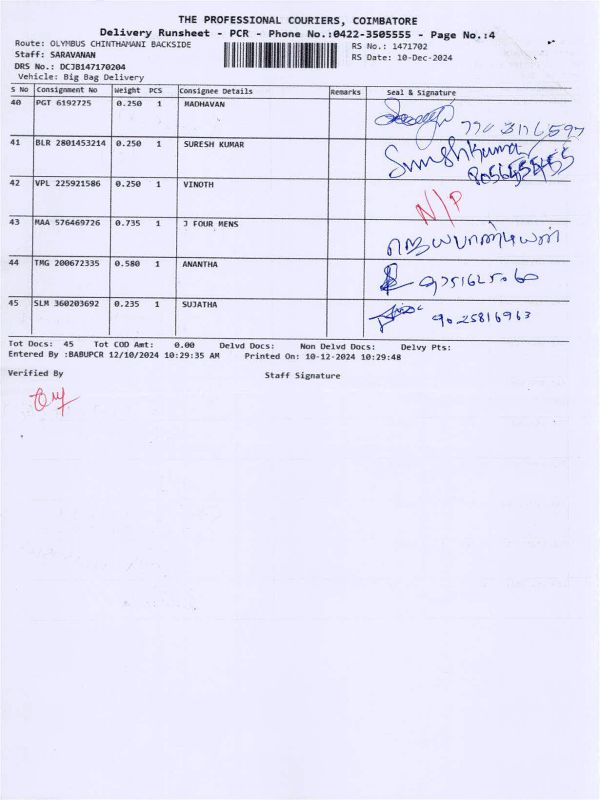 THE PROFESSIONAL COURIERS, COIMBATORE
Delivery Runsheet - PCR - Phone No.:0422-3505555 - Page No.:4
Route: OLYMBUS CHINTHAMANI BACKSIDE RS No.: 1471702
Staff: SARAVANAN RS Date: 10-Dec-2024
DRS No.: DCJB147170204
Vehicle: Big Bag Delivery
S No Consignment No Weight PCS Consignee Details Remarks Seal & Signature
40 PGT 6192725 0.250 1 MADHAVAN
41 BLR 2801453214 0.250 1 SURESH KUMAR Sureshkumar
42 VPL 225921586 0.250 1 VINOTH N/P
43 MAA 576469726 0.735 1 J FOUR MENS ஜெயபாண்டியன்
44 TMG 200672335 0.580 1 ANANTHA 9751625060
45 SLM 360203692 0.235 1 SUJATHA 9025816963
Tot Docs: 45 Tot COD Amt: 0.00 Delvd Docs: Non Delvd Docs: Delvy Pts:
Entered By :BABUPCR 12/10/2024 10:29:35 AM Printed On: 10-12-2024 10:29:48
Verified By Staff Signature